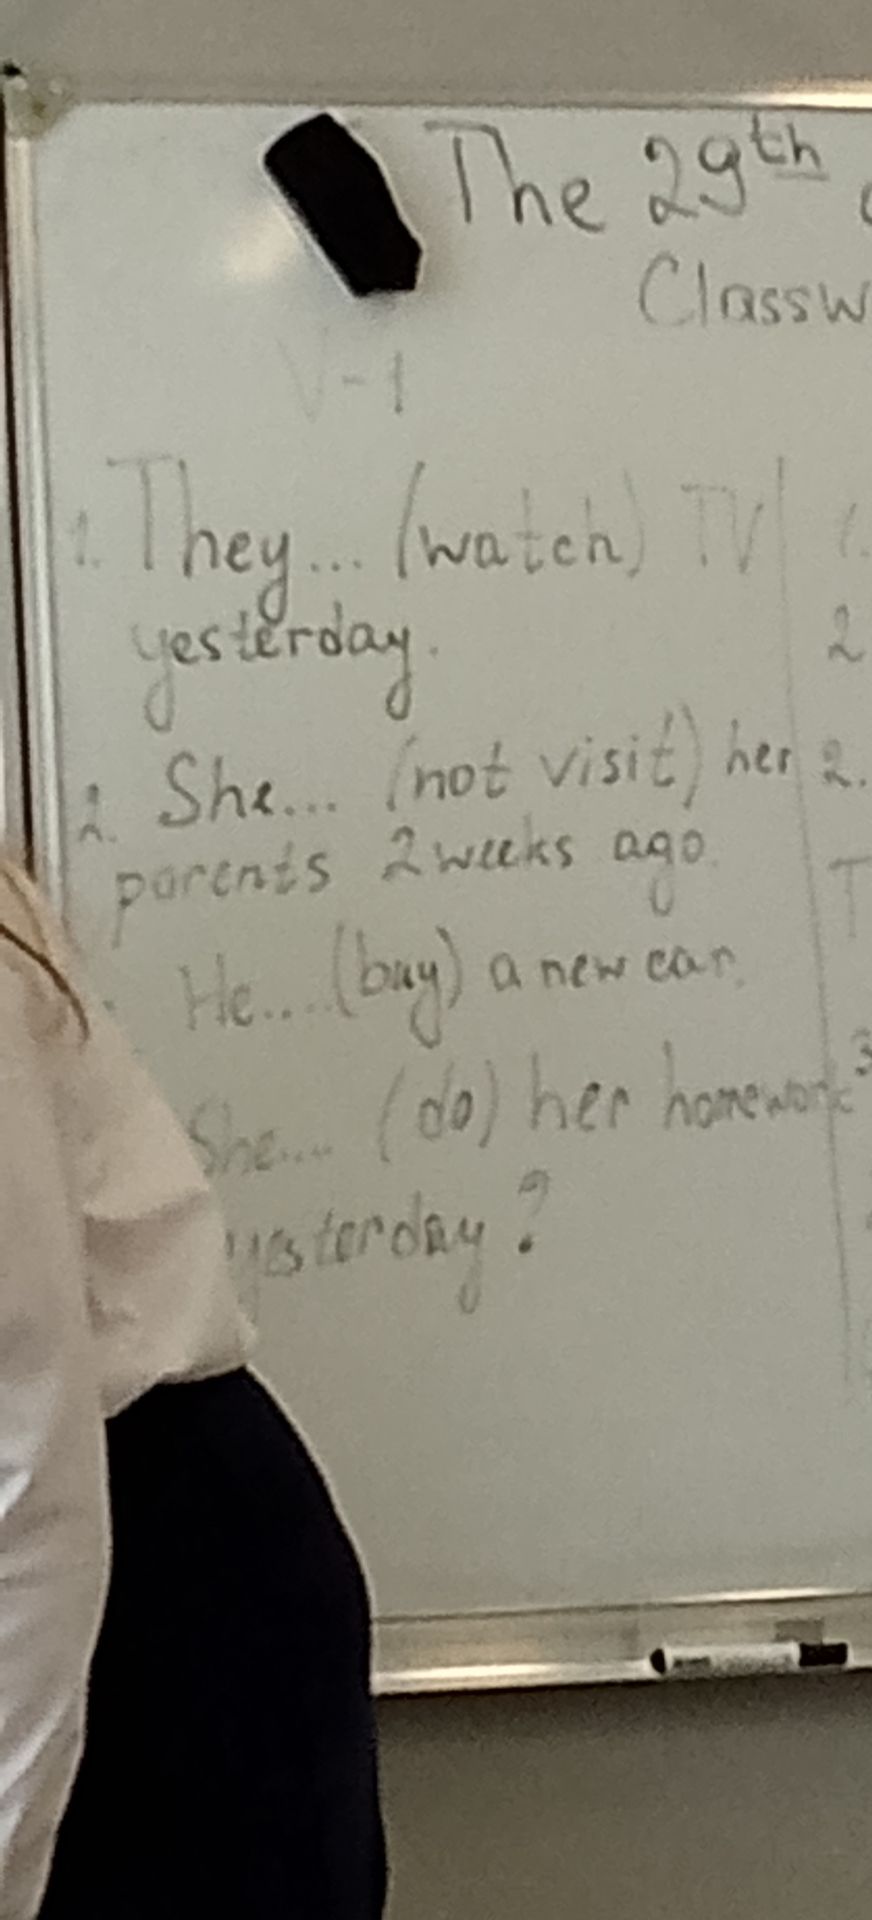 The 29th
Classw
V-1
1. They... (watch) TV
yesterday.
2. She... (not visit) her
parents 2 weeks ago.
He.... (buy) a new car.
She.... (do) her homework
yesterday?
1.
2
2.
T
3